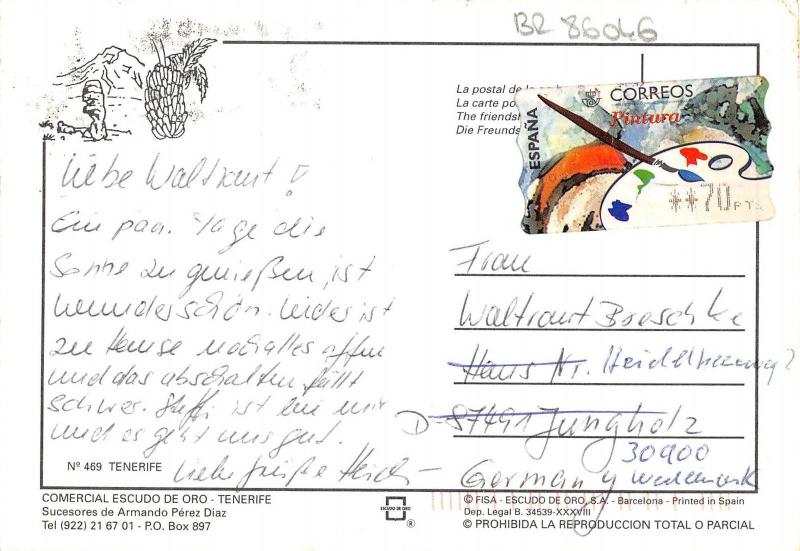 BR 86046
La postal de
La carte po
The friendsh
Die Freunds
ESPAÑA
CORREOS
Pintura
**70 PTS
Liebe Waltraut!
Ein paar Tage die
Sonne zu genießen, ist
wunderschön. Leider ist
zu Hause noch alles offen
und das abschalten fällt
schwer. Steffi ist bei mir
und es geht uns gut.
Liebe Grüße
Frau
Waltraut Boeschke
Haus Nr.
D-87491 Jungholz
30900
Germany Wedemark
Nº 469 TENERIFE
COMERCIAL ESCUDO DE ORO - TENERIFE
Sucesores de Armando Pérez Diaz
Tel (922) 21 67 01 - P.O. Box 897
ESCUDO DE ORO
®
© FISA - ESCUDO DE ORO, S.A. - Barcelona - Printed in Spain
Dep. Legal B. 34539-XXXVIII
© PROHIBIDA LA REPRODUCCION TOTAL O PARCIAL